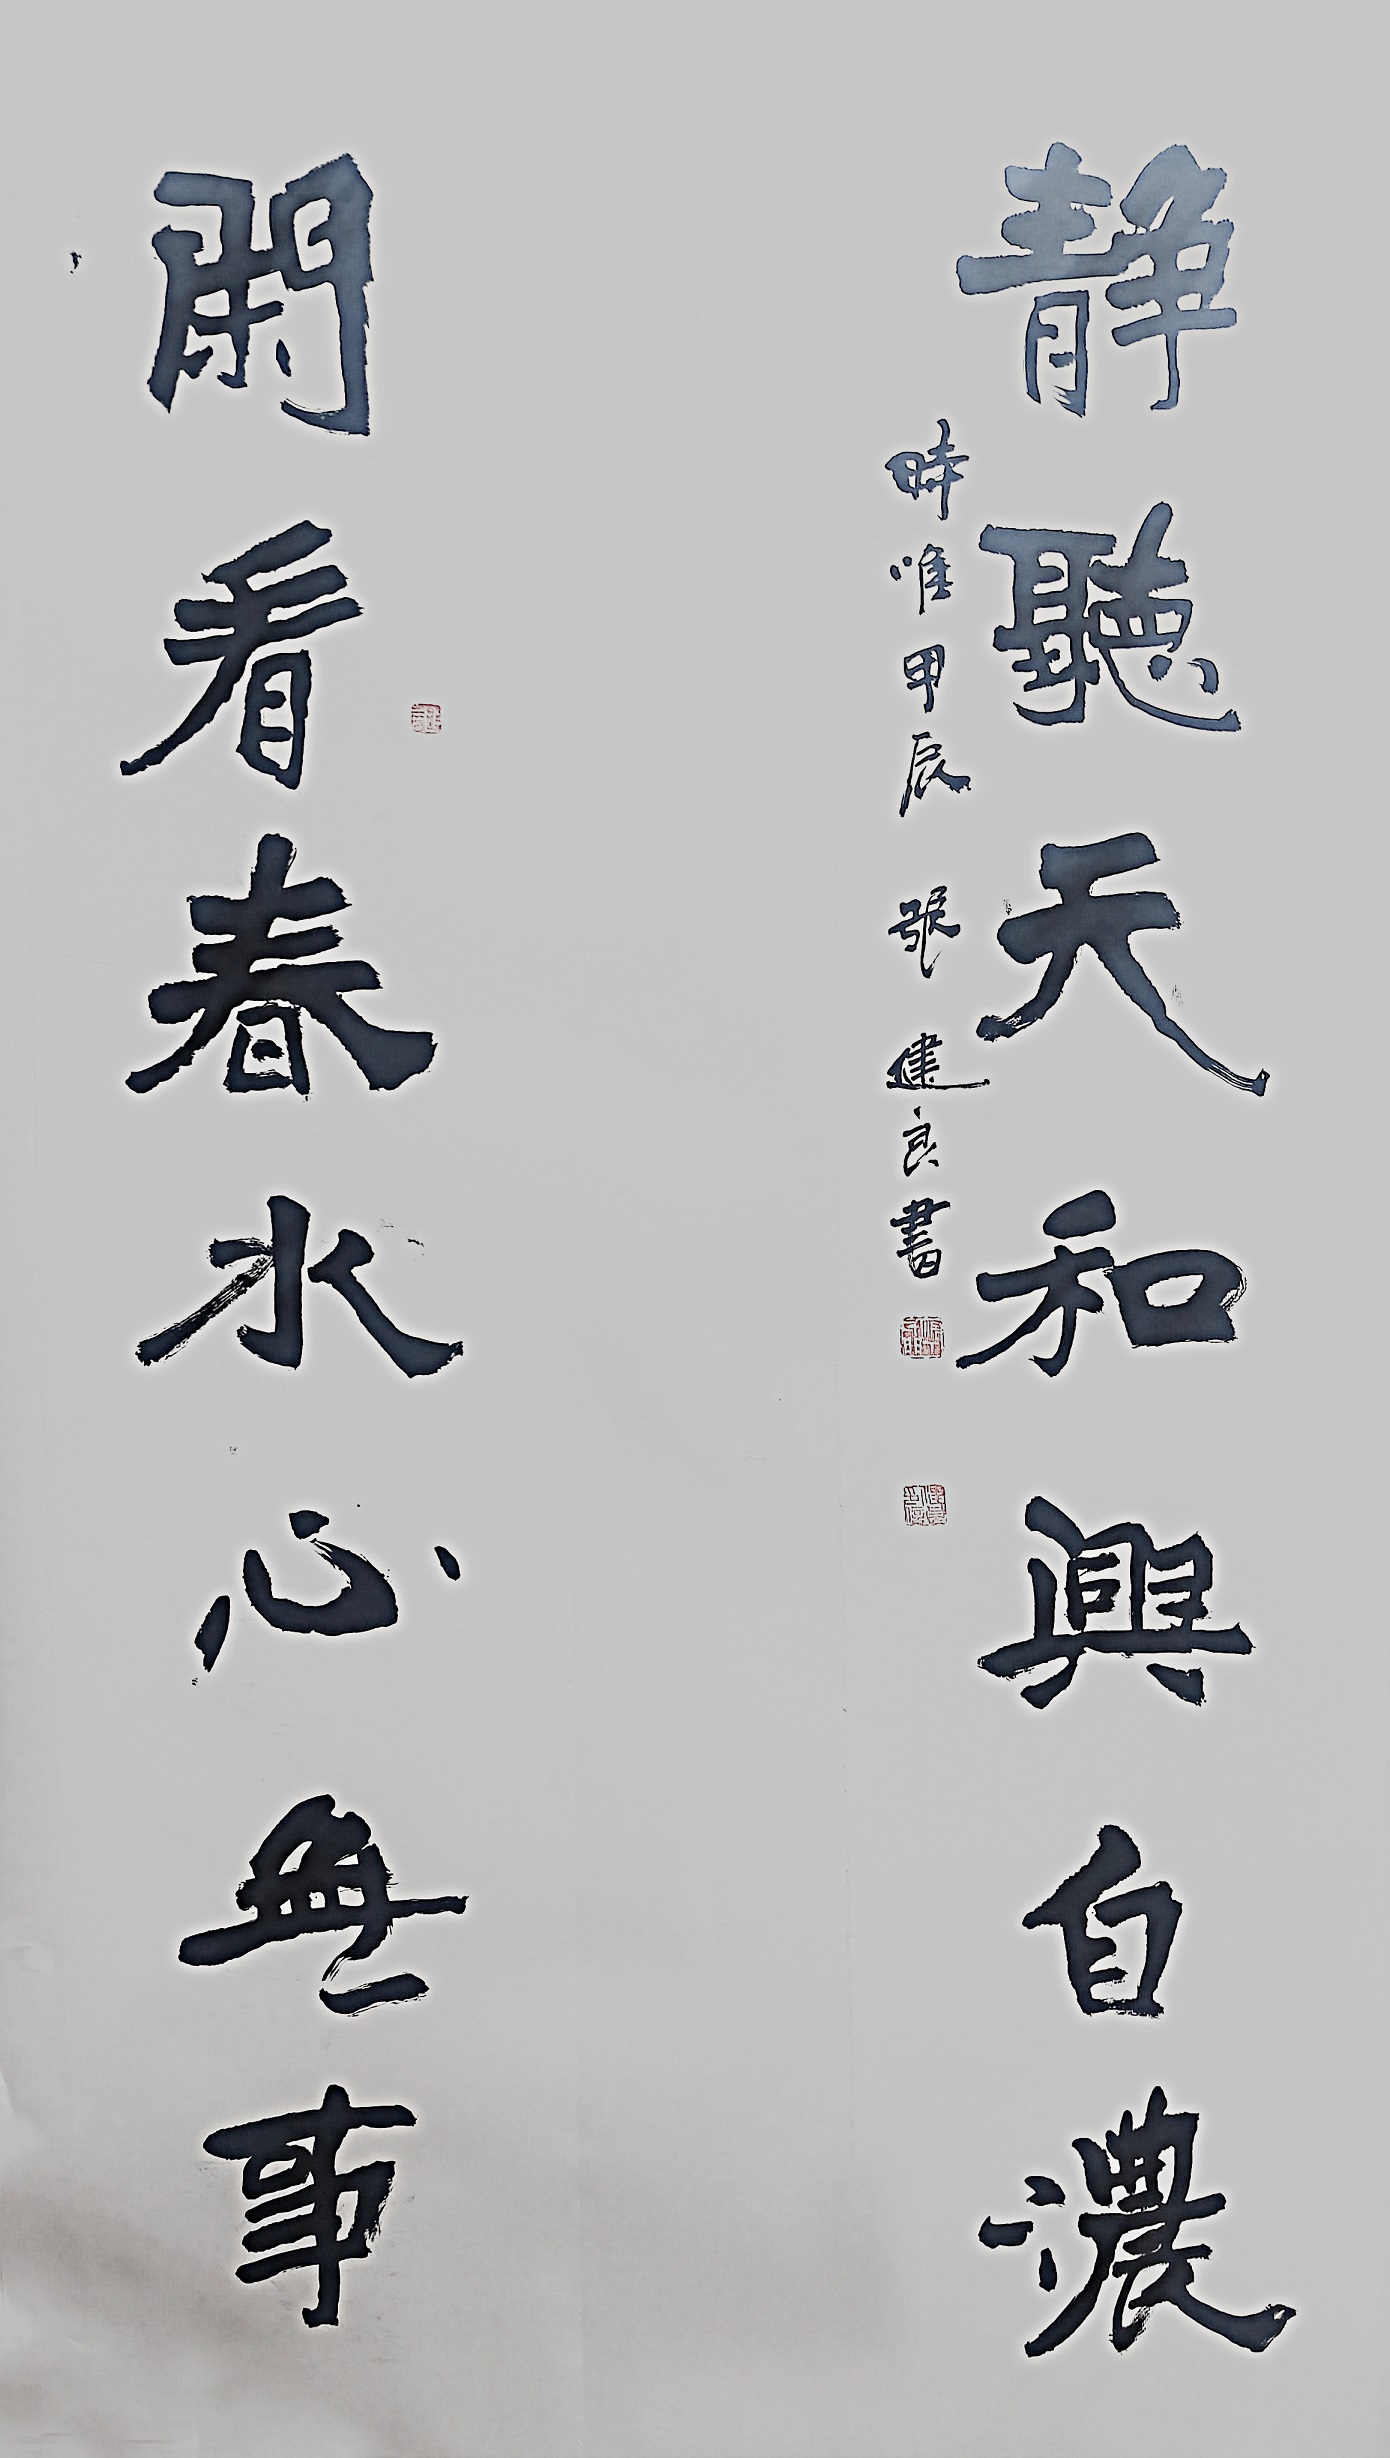 靜聽天和興自濃
時唯甲辰 張建良書
閑看春水心無事